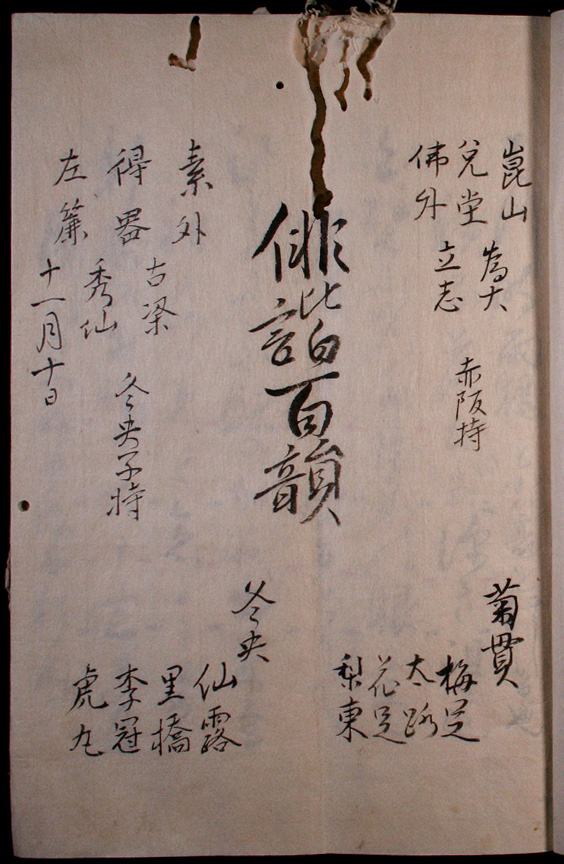 崑山
為大
兌堂
立志
佛外
赤阪持
菊貫
梅足
太路
花足
梨東
俳諧百韻
素外
古梁
得器
秀仙
左簾
冬央子持
十一月十日
冬央
仙露
里橋
李冠
虎九